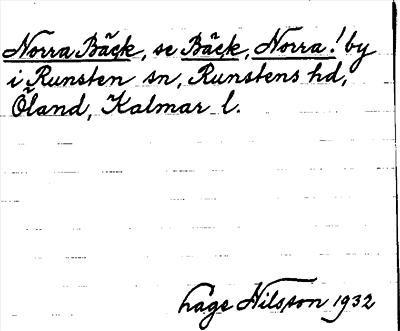 Norra Bäck, se Bäck, Norra! by
i Runsten sn, Runstens hd,
Öland, Kalmar l.
Håge Nilsson 1932